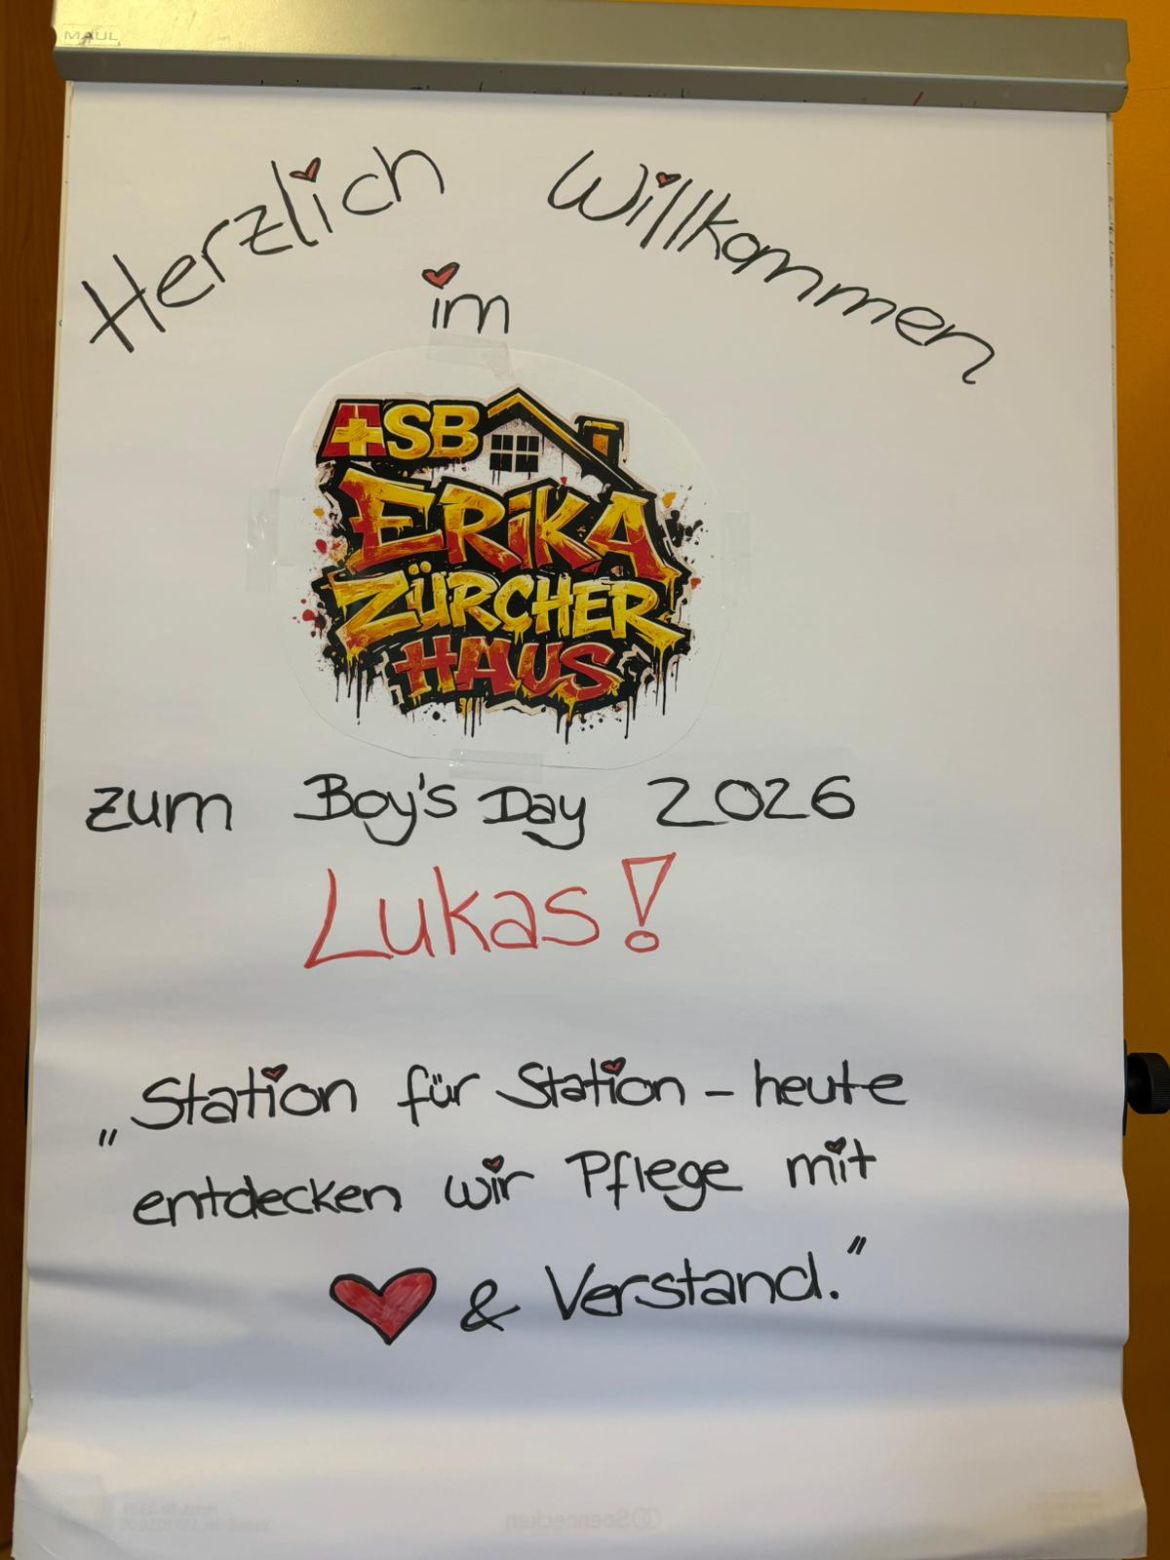 MAUL
Herzlich Willkommen
im
ASB
ERIKA
ZÜRCHER
HAUS
zum Boy's Day 2026
Lukas!
„Station für Station – heute
entdecken wir Pflege mit
& Verstand."
Soennecken